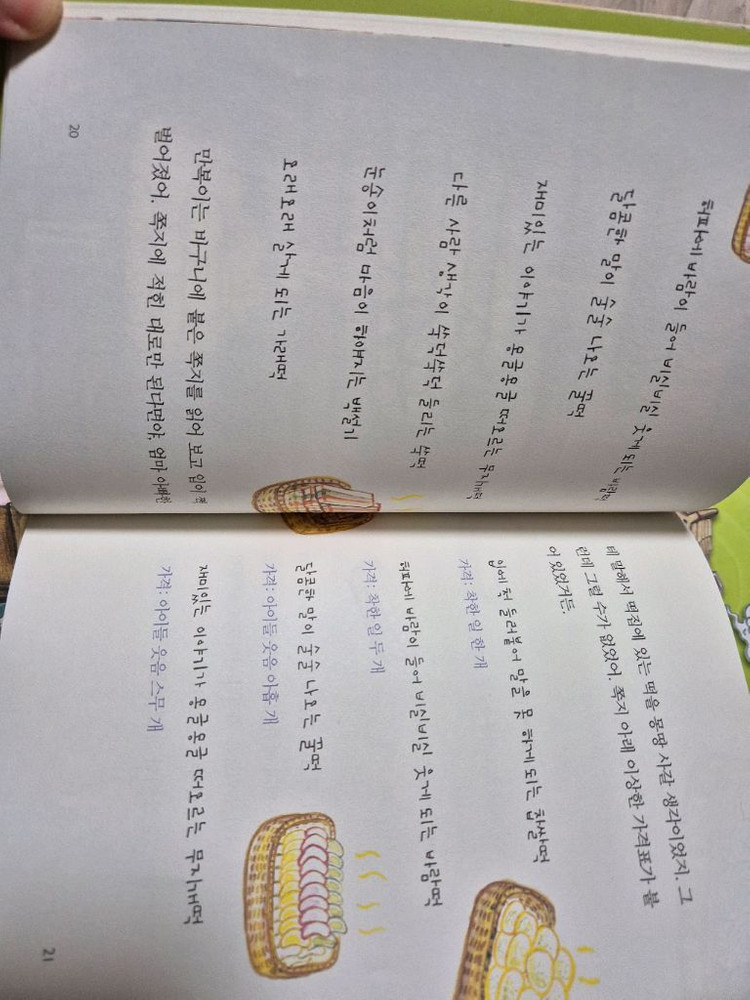 허파에 바람이 들어 비실비실 웃게 되는 바람떡
달콤한 말이 술술 나오는 꿀떡
재미있는 이야기가 몽글몽글 떠오르는 무지개떡
다른 사람 생각이 쑥덕쑥덕 들리는 쑥떡
눈송이처럼 마음이 하얘지는 백설기
오래오래 살게 되는 가래떡
만복이는 바구니에 붙은 쪽지를 읽어 보고 입이 쩍
벌어졌어. 쪽지에 적힌 대로만 된다면야, 엄마 아빠한
20
테 말해서 떡집에 있는 떡을 몽땅 사갈 생각이었지. 그
런데 그럴 수가 없었어. 쪽지 아래 이상한 가격표가 붙
어 있었거든.
입에 척 들러붙어 말을 못 하게 되는 찹쌀떡
가격: 착한 일 한 개
허파에 바람이 들어 비실비실 웃게 되는 바람떡
가격: 착한 일 두 개
달콤한 말이 술술 나오는 꿀떡
가격: 아이들 웃음 아홉 개
재미있는 이야기가 몽글몽글 떠오르는 무지개떡
가격: 아이들 웃음 스무 개
21